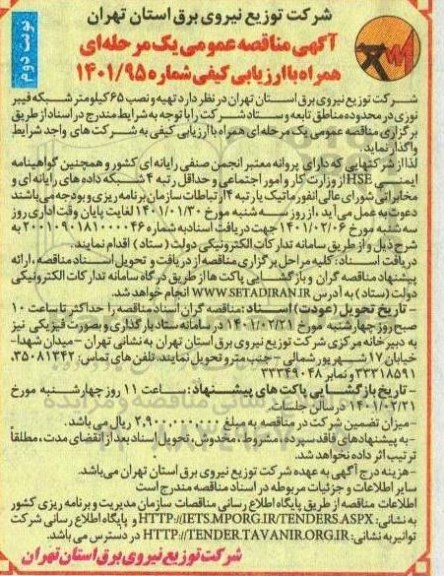 شرکت توزیع نیروی برق استان تهران
آگهی مناقصه عمومی یک مرحله‌ای
همراه با ارزیابی کیفی شماره ۱۴۰۱/۹۵
نوبت دوم
شرکت توزیع نیروی برق استان تهران در نظر دارد تهیه و نصب ۶۵ کیلومتر شبکه فیبر
نوری در محدوده مناطق تابعه و ستاد شرکت را با توجه به شرایط مندرج در اسناد از طریق
برگزاری مناقصه عمومی یک مرحله‌ای همراه با ارزیابی کیفی به شرکت های واجد شرایط
واگذار نماید.
لذا از شرکتهایی که دارای پروانه معتبر انجمن صنفی رایانه ای کشور و همچنین گواهینامه
ایمنی HSE از وزارت کار و امور اجتماعی و حداقل رتبه ۴ شبکه داده های رایانه ای و
مخابراتی شورای عالی انفورماتیک یا رتبه ۴ ارتباطات سازمان برنامه ریزی و بودجه می باشند
دعوت به عمل می آید، از روز سه شنبه مورخ ۱۴۰۱/۰۱/۳۰ لغایت پایان وقت اداری روز
سه شنبه مورخ ۱۴۰۱/۰۲/۰۶ جهت دریافت اسناد به شماره ۲۰۰۱۰۹۰۱۸۱۰۰۰۰۴۶ به
شرح ذیل و از طریق سامانه تدارکات الکترونیکی دولت (ستاد) اقدام نمایند.
دریافت اسناد: کلیه مراحل برگزاری مناقصه از دریافت و تحویل اسناد مناقصه، ارائه
پیشنهاد مناقصه گران و بازگشایی پاکت ها از طریق درگاه سامانه تدارکات الکترونیکی
دولت (ستاد) به آدرس WWW.SETADIRAN.IR انجام خواهد شد.
- تاریخ تحویل (عودت) اسناد: مناقصه گران اسناد مناقصه را حداکثر تا ساعت ۱۰
صبح روز چهارشنبه مورخ ۱۴۰۱/۰۲/۲۱ در سامانه ستاد بارگذاری و بصورت فیزیکی نیز
به دبیرخانه مرکزی شرکت توزیع نیروی برق استان تهران به نشانی تهران - میدان شهدا-
خیابان ۱۷ شهریور شمالی - جنب مترو تحویل نمایند. تلفن های تماس: ۳۵۰۸۱۳۴۲،
۳۳۳۱۸۵۹۱ و نمابر ۳۳۳۴۹۰۴۸
- تاریخ بازگشایی پاکت های پیشنهاد: ساعت ۱۱ روز چهارشنبه مورخ
۱۴۰۱/۰۲/۲۱ در سالن جلسات
-میزان تضمین شرکت در مناقصه به مبلغ ۲,۹۰۰,۰۰۰,۰۰۰ ریال می باشد.
-به پیشنهادهای فاقد سپرده، مشروط، مخدوش، تحویل اسناد بعد از انقضای مدت، مطلقاً
ترتیب اثر داده نخواهد شد.
-هزینه درج آگهی به عهده شرکت توزیع نیروی برق استان تهران می باشد.
سایر اطلاعات و جزئیات مربوطه در اسناد مناقصه مندرج است
اطلاعات مناقصه از طریق پایگاه اطلاع رسانی مناقصات سازمان مدیریت و برنامه ریزی کشور
به نشانی: HTTP://IETS.MPORG.IR/TENDERS.ASPX و پایگاه اطلاع رسانی شرکت
توانیر به نشانی: HTTP://TENDER.TAVANIR.ORG.IR در دسترس می باشد.
شرکت توزیع نیروی برق استان تهران